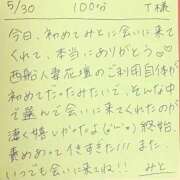 5/30 100分 T様
今日、初めてみとに会いに来て
くれて、本当にありがとう♡
西船人妻花壇のご利用自体が
初めてだったみたいで、そんな中
で選んで会いに来てくれたのが
凄く嬉しかったよ(^^)終始、
責めあってイきすぎた!!! また、
いつでも会いに来てね!! みと